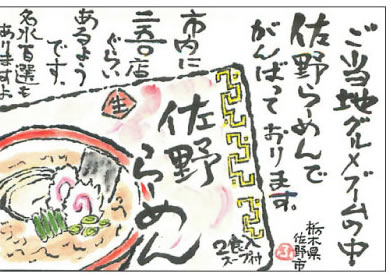 ご当地グルメブームの中
佐野らーめんで
がんばっております。
市内に
二百店
ぐらい
あるよう
です。
名水百選も
ありますよ
栃木県
佐野市
生
佐野
らーめん
2食入
スープ付